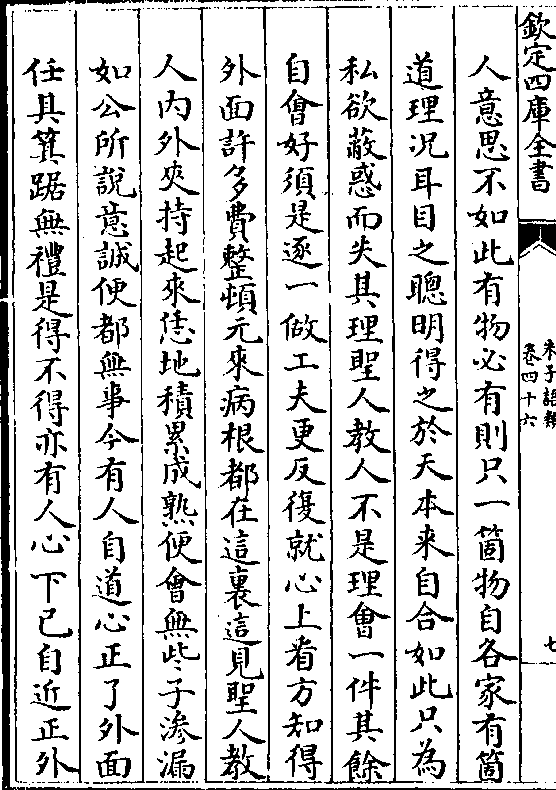 欽定四庫全書
朱子語類
卷四十六
七
人意思不如此有物必有則只一箇物自各家有箇
道理况耳目之聰明得之於天本來自合如此只為
私欲蔽惑而失其理聖人教人不是理會一件其餘
自會好須是逐一做工夫更反復就心上看方知得
外面許多費整頓元來病根都在這裏這見聖人教
人内外夾持起來恁地積累成熟便會無些子滲漏
如公所說意誠便都無事今有人自道心正了外面
任其箕踞無禮是得不得亦有人心下已自近正外